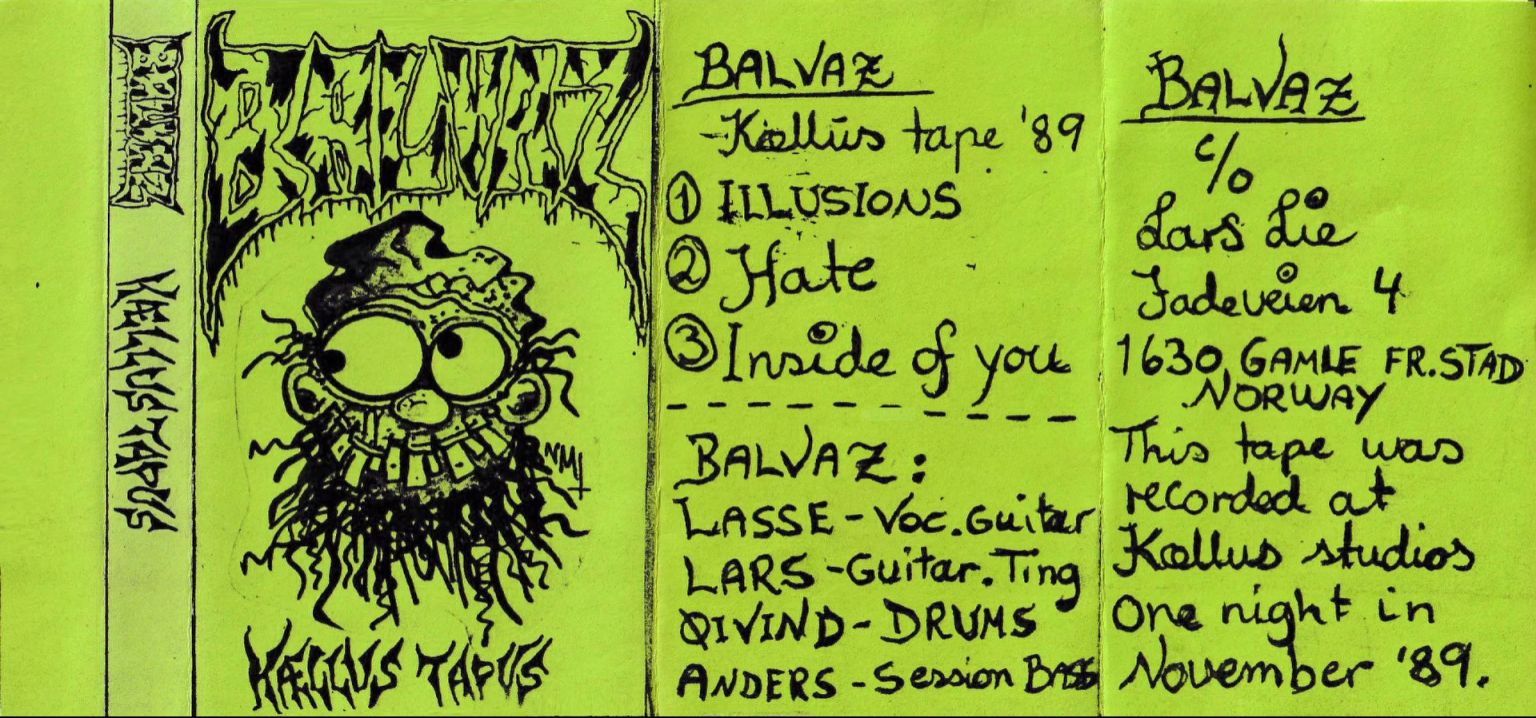 BALVAZ
KÆLLUS TAPUS
BALVAZ
NMJ
KÆLLUS TAPUS
BALVAZ
-Kællus tape '89
① ILLUSIONS
② Hate
③ Inside of you
BALVAZ:
LASSE - Voc. Guitar
LARS - Guitar. Ting
ØIVIND - DRUMS
ANDERS - Session BASS
BALVAZ
c/o
Lars Lie
Jadeveien 4
1630 GAMLE FR.STAD
NORWAY
This tape was
recorded at
Kællus studios
One night in
November '89.